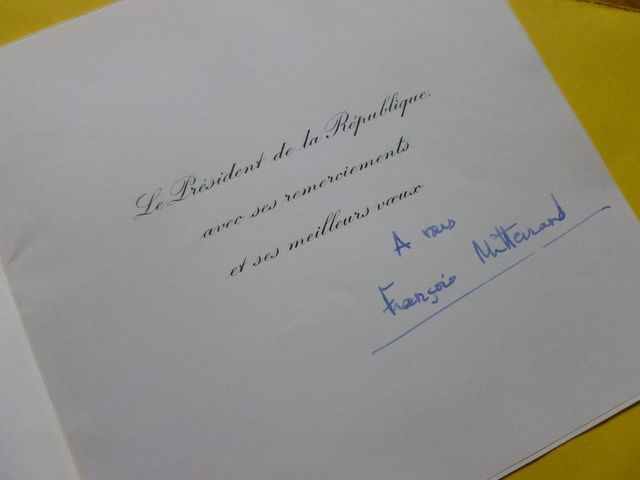 Le Président de la République.
avec ses remerciements
et ses meilleurs vœux
A vous
François Mitterrand